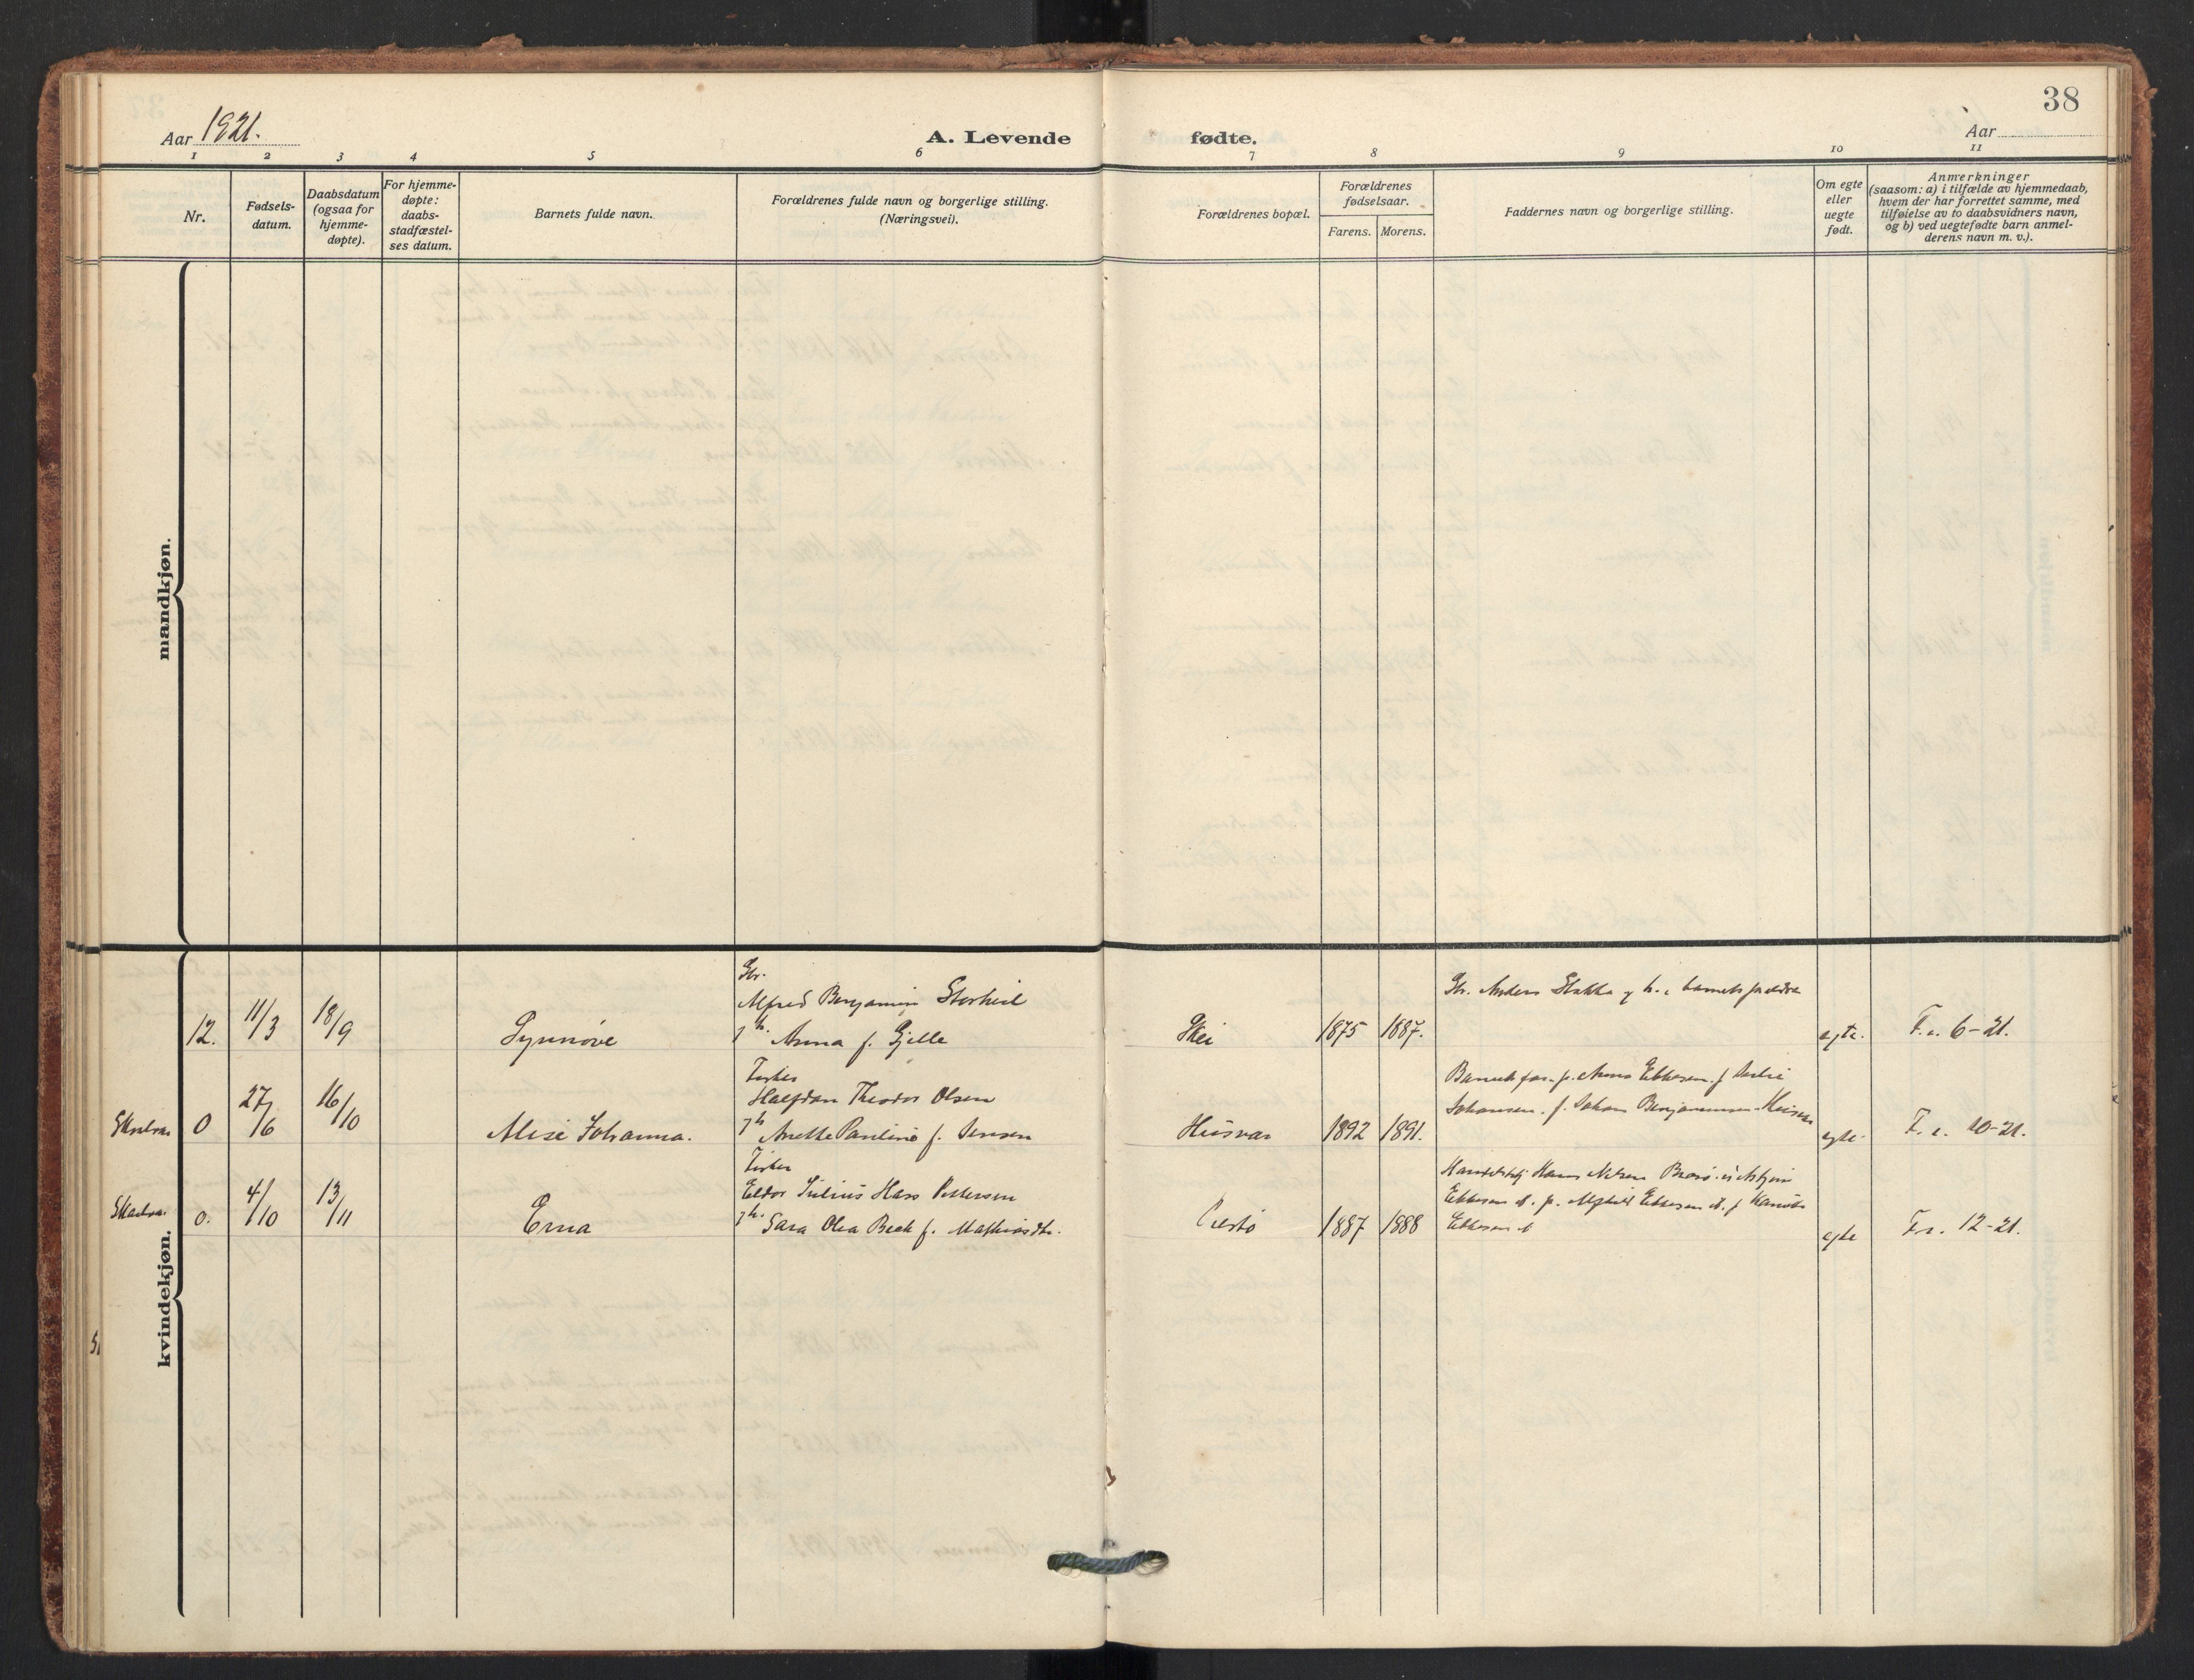 38
Aar 1921.
A. Levende fødte.
Aar
1 2 3 4 5 6 7 8 9 10 11
Nr.
Fødsels-
datum.
Daabsdatum
(ogsaa for
hjemme-
døpte).
For hjemme-
døpte:
daabs-
stadfæstel-
ses datum.
Barnets fulde navn.
Forældrenes fulde navn og borgerlige stilling.
(Næringsvei).
Forældrenes bopæl.
Forældrenes
fødselsaar.
Farens. Morens.
Faddernes navn og borgerlige stilling.
Om egte
eller
uegte
født.
Anmerkninger
(saasom: a) i tilfælde av hjemmedaab,
hvem der har forrettet samme, med
tilføielse av to daabsvidners navn,
og b) ved uegtefødte barn anmel-
derens navn m. v.).
mandkjøn.
kvindekjøn.
12. 11/3 18/9
Synnøve
Gbr.
Alfred Benjamin Storheil
Anna f. Gjelle
1875 1887.
Gbr. Anders h.
egte.
6-21.
0 27/6 16/10
Alise Johanna.
Fisker
Halfdan Theodor Olsen
Anette Pauline f. Jensen
Husvær
1892 1891.
Johansen. Johan Benjaminsen
egte.
10-21.
0. 4/10 13/11
Erna
Fisker
Eldor Julius Hass Pettersen
Sara Olea Beck f. Mathiasdtr.
1887 1888
Hans Nilsen
Ebbesen
Ebbesen
Ebbesen
egte
12-21.